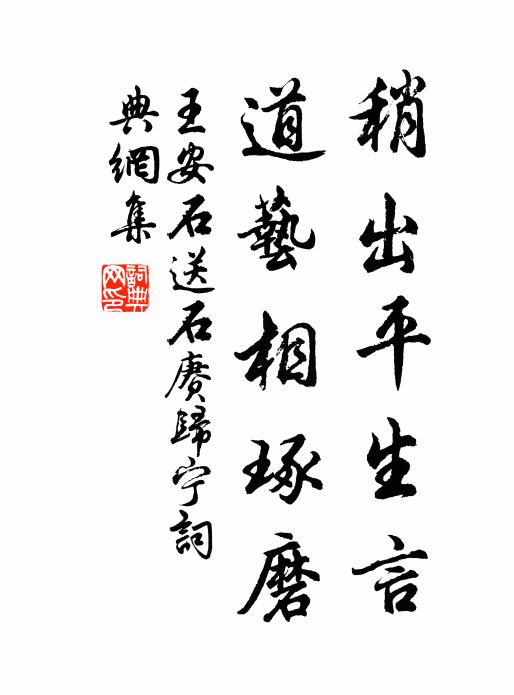 稍出平生言
道藝相琢磨
王安石送石賡歸宁詞
典網集
詞典
网印